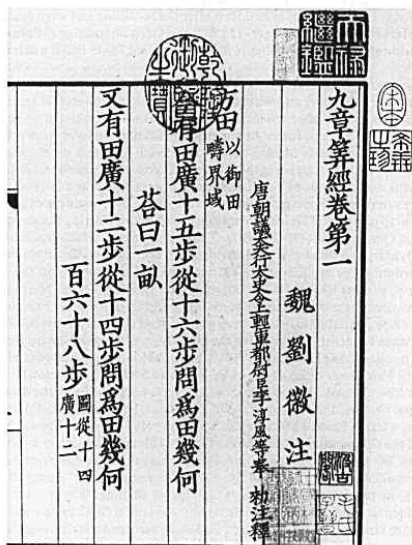 宋本
希世之珍
天祿繼鑑
乾隆御覽之寶
九章筭經卷第一
魏劉徽注
唐朝議大夫行太史令上輕車都尉臣李淳風等奉 勑注釋
方田以御田
疇界域
今有田廣十五步從十六步問爲田幾何
荅曰一畝
又有田廣十二步從十四步問爲田幾何
百六十八步圖從十四
廣十二